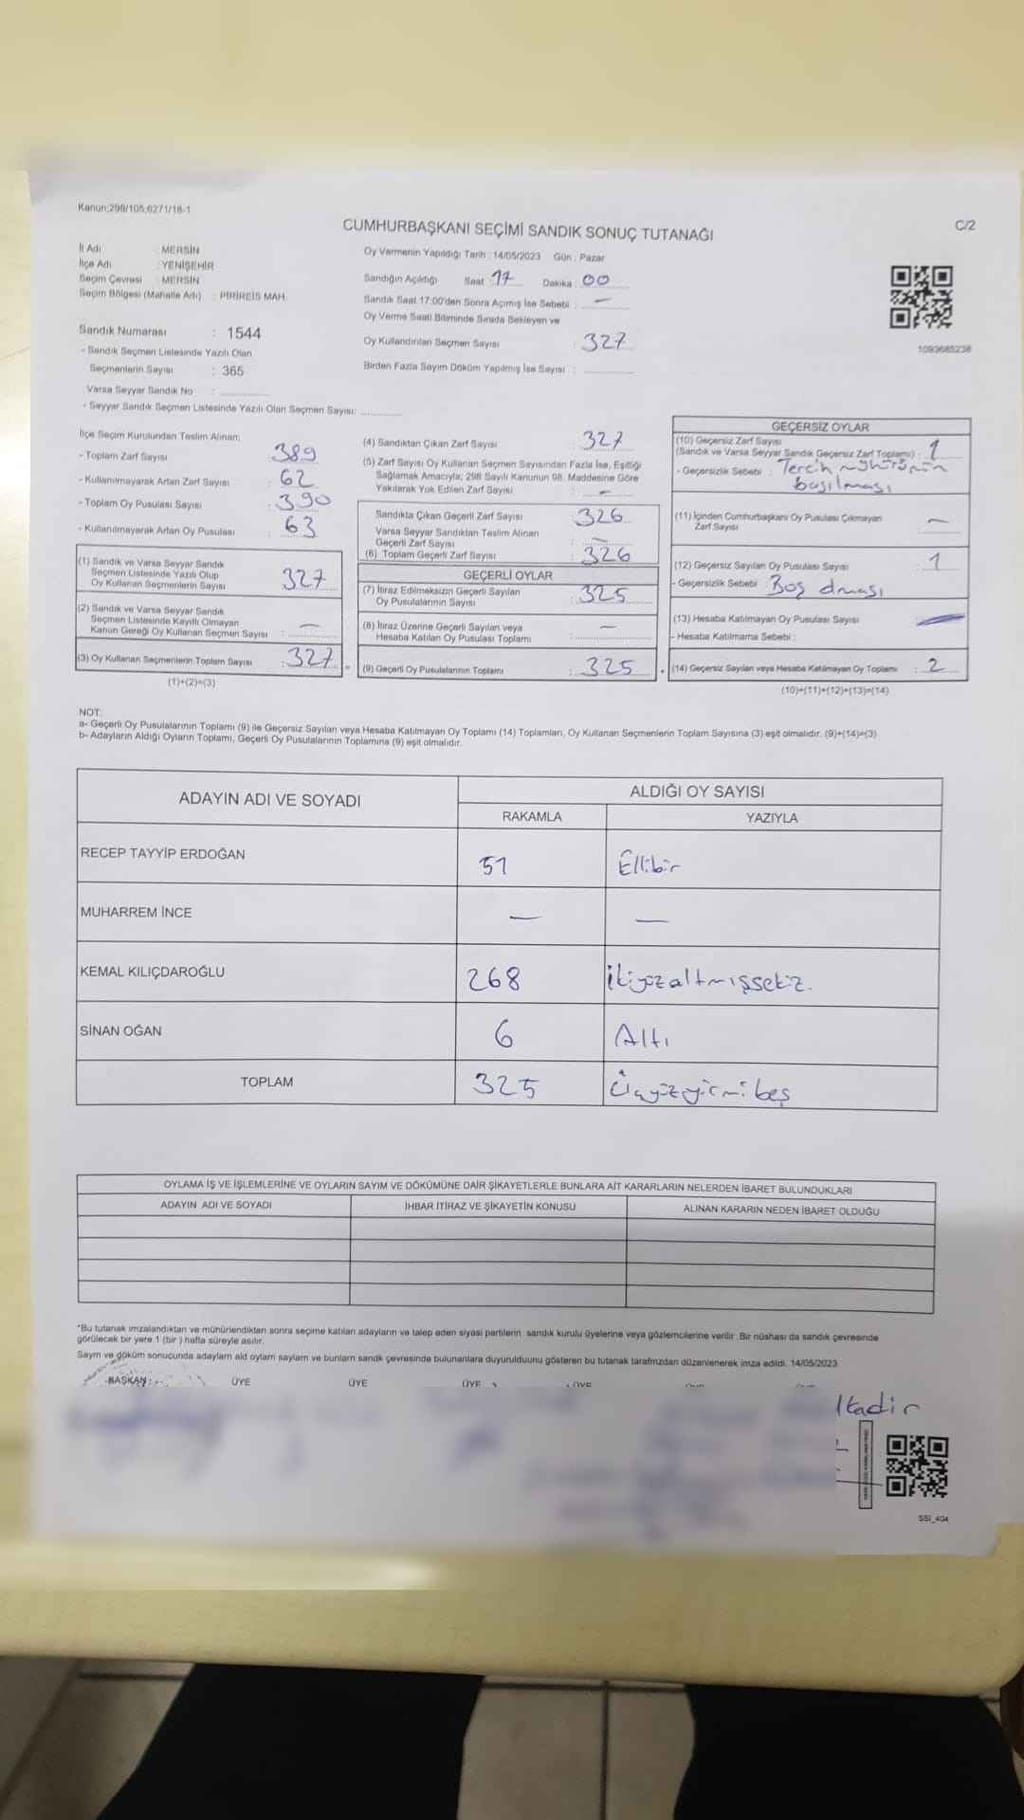 Kanun:298/105,6271/18-1
CUMHURBAŞKANI SEÇİMİ SANDIK SONUÇ TUTANAĞI
C/2
İl Adı : MERSİN
İlçe Adı : YENİŞEHİR
Seçim Çevresi : MERSİN
Seçim Bölgesi (Mahalle Adı) : PİRİREİS MAH.
Oy Vermenin Yapıldığı Tarih : 14/05/2023 Gün : Pazar
Sandığın Açıldığı Saat : 17 Dakika : 00
Sandık Saat 17:00'den Sonra Açımış İse Sebebi : —
Oy Verme Saati Bitiminde Sırada Bekleyen ve
Oy Kullandırılan Seçmen Sayısı : 327
Birden Fazla Sayım Döküm Yapılmış İse Sayısı :
1093685238
Sandık Numarası : 1544
- Sandık Seçmen Listesinde Yazılı Olan
Seçmenlerin Sayısı : 365
Varsa Seyyar Sandık No :
- Seyyar Sandık Seçmen Listesinde Yazılı Olan Seçmen Sayısı:
İlçe Seçim Kurulundan Teslim Alınan;
- Toplam Zarf Sayısı : 389
- Kullanılmayarak Artan Zarf Sayısı : 62
- Toplam Oy Pusulası Sayısı : 390
- Kullanılmayarak Artan Oy Pusulası : 63
(1) Sandık ve Varsa Seyyar Sandık
Seçmen Listesinde Yazılı Olup
Oy Kullanan Seçmenlerin Sayısı : 327
(2) Sandık ve Varsa Seyyar Sandık
Seçmen Listesinde Kayıtlı Olmayan
Kanun Gereği Oy Kullanan Seçmen Sayısı : —
(3) Oy Kullanan Seçmenlerin Toplam Sayısı : 327
(1)+(2)=(3)
(4) Sandıktan Çıkan Zarf Sayısı : 327
(5) Zarf Sayısı Oy Kullanan Seçmen Sayısından Fazla İse, Eşitliği
Sağlamak Amacıyla; 298 Sayılı Kanunun 98. Maddesine Göre
Yakılarak Yok Edilen Zarf Sayısı : —
Sandıkta Çıkan Geçerli Zarf Sayısı : 326
Varsa Seyyar Sandıktan Teslim Alınan
Geçerli Zarf Sayısı : —
(6) Toplam Geçerli Zarf Sayısı : 326
GEÇERLİ OYLAR
(7) İtiraz Edilmeksizin Geçerli Sayılan
Oy Pusulalarının Sayısı : 325
(8) İtiraz Üzerine Geçerli Sayılan veya
Hesaba Katılan Oy Pusulası Toplamı : —
(9) Geçerli Oy Pusulalarının Toplamı : 325
GEÇERSİZ OYLAR
(10) Geçersiz Zarf Sayısı
(Sandık ve Varsa Seyyar Sandık Geçersiz Zarf Toplamı) : 1
- Geçersizlik Sebebi : Tercih mührünün
basılması
(11) İçinden Cumhurbaşkanı Oy Pusulası Çıkmayan
Zarf Sayısı : —
(12) Geçersiz Sayılan Oy Pusulası Sayısı : 1
- Geçersizlik Sebebi : Boş olması
(13) Hesaba Katılmayan Oy Pusulası Sayısı : —
- Hesaba Katılmama Sebebi :
(14) Geçersiz Sayılan veya Hesaba Katılmayan Oy Toplamı : 2
(10)+(11)+(12)+(13)=(14)
NOT:
a- Geçerli Oy Pusulalarının Toplamı (9) ile Geçersiz Sayılan veya Hesaba Katılmayan Oy Toplamı (14) Toplamları, Oy Kullanan Seçmenlerin Toplam Sayısına (3) eşit olmalıdır. (9)+(14)=(3)
b- Adayların Aldığı Oyların Toplamı, Geçerli Oy Pusulalarının Toplamına (9) eşit olmalıdır.
ADAYIN ADI VE SOYADI
ALDIĞI OY SAYISI
RAKAMLA YAZIYLA
RECEP TAYYİP ERDOĞAN 51 Ellibir
MUHARREM İNCE — —
KEMAL KILIÇDAROĞLU 268 İkiyüzaltmışsekiz.
SİNAN OĞAN 6 Altı
TOPLAM 325 Üçyüzyirmibeş
OYLAMA İŞ VE İŞLEMLERİNE VE OYLARIN SAYIM VE DÖKÜMÜNE DAİR ŞİKAYETLERLE BUNLARA AİT KARARLARIN NELERDEN İBARET BULUNDUKLARI
ADAYIN ADI VE SOYADI İHBAR İTİRAZ VE ŞİKAYETİN KONUSU ALINAN KARARIN NEDEN İBARET OLDUĞU
*Bu tutanak imzalandıktan ve mühürlendikten sonra seçime katılan adayların ve talep eden siyasi partilerin sandık kurulu üyelerine veya gözlemcilerine verilir. Bir nüshası da sandık çevresinde
görülecek bir yere 1 (bir) hafta süreyle asılır.
Sayım ve döküm sonucunda adayların ald oyların sayların ve bunların sandık çevresinde bulunanlara duyurulduunu gösteren bu tutanak tarafmzdan düzenlenerek imza edildi. 14/05/2023
BAŞKAN ÜYE ÜYE ÜYE ÜYE
lkadir
SSI_404